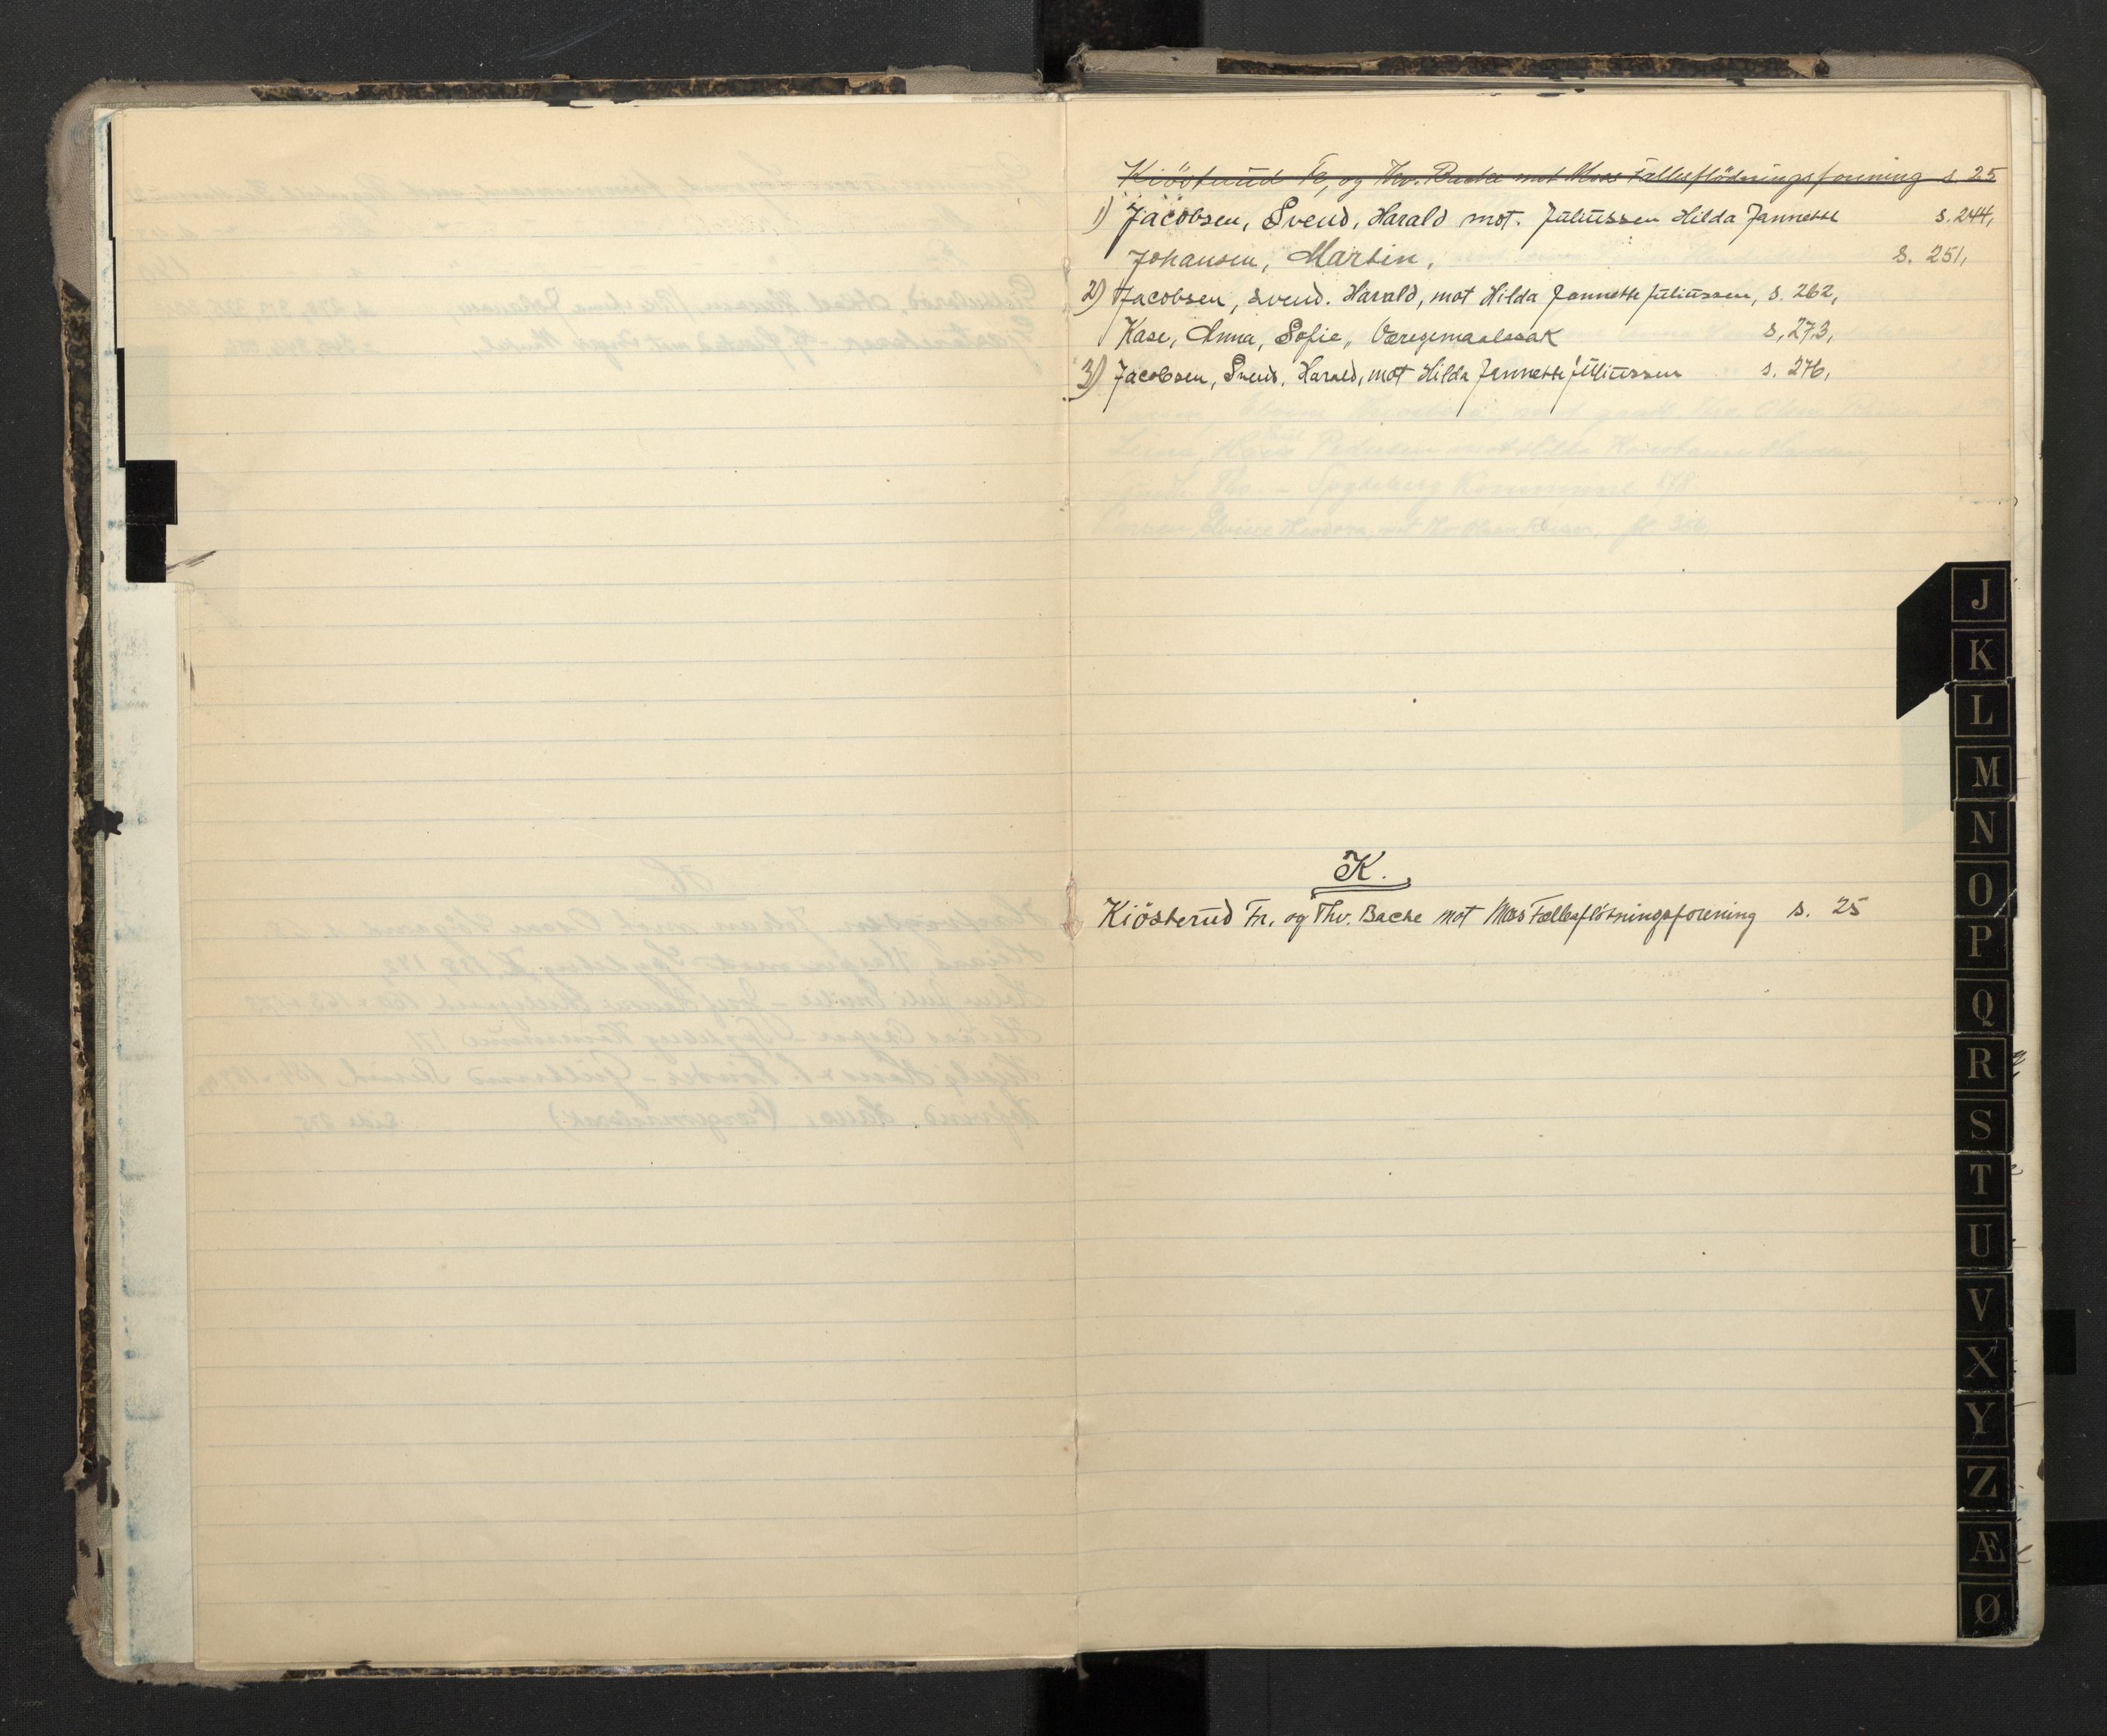 Kiösterud Fr, og Thv. Bache mot Moss Fællesflödningsforening s. 25
1) Jacobsen, Svend, Harald mot. Juliussen Hilda Jannette s. 244,
Johansen, Martin, s. 251,
2) Jacobsen, Svend. Harald, mot Hilda Jannette Juliussen, s. 262,
Kase, Anna, Sofie, Værgemaalssak s, 273,
3) Jacobsen, Svend, Harald, mot Hilda Jannette Juliussen s. 276,
K.
Kiösterud Fr. og Thv. Bache mot Mos Fællesflötningsforening s. 25
J
K
L
M
N
O
P
Q
R
S
T
U
V
X
Y
Z
Æ
Ø